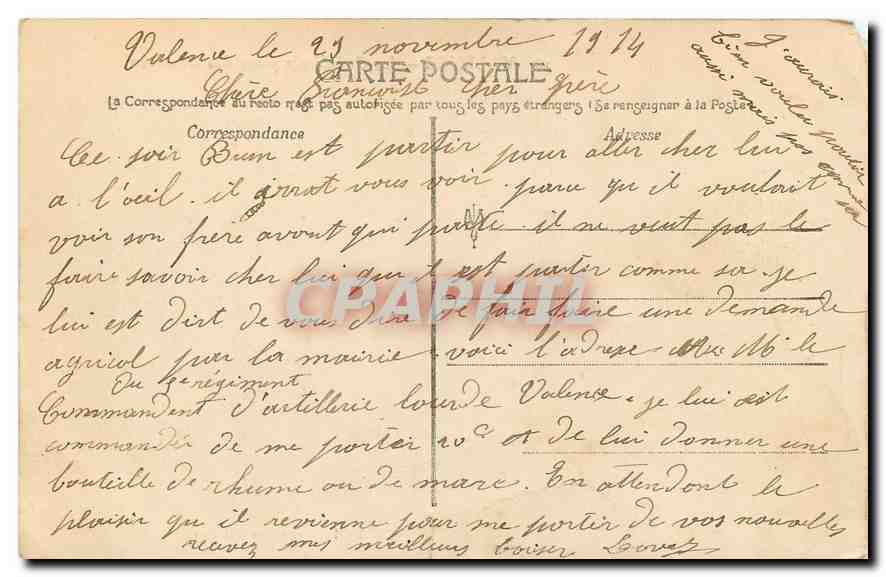 Valence le 29 novembre 1914
CARTE POSTALE
Chère cher frère
La Correspondance au recto n'est pas autorisée par tous les pays étrangers (Se renseigner à la Poste)
Correspondance Adresse
J'aurais
bien voulu pouvoir
aussi mais pas
Ce soir est partir pour aller cher lui
a l'oeil. il irrat vous voir parce qu il voulait
voir son frère avant qui parte. il ne veut pas le
faire savoir cher lui que il est partir comme sa. je
lui est dirt de vous dire de fair faire une demande
agricol par la mairie. voici l'adresse Mr le
du régiment
Commandent d'artillerie lourde Valence. je lui est
commander de me porter et de lui donner une
bouteille de rhume ou de marc. En attendent le
plaisir qu il revienne pour me porter de vos nouvelles
recevez mes meilleurs baiser
CPAPHIL